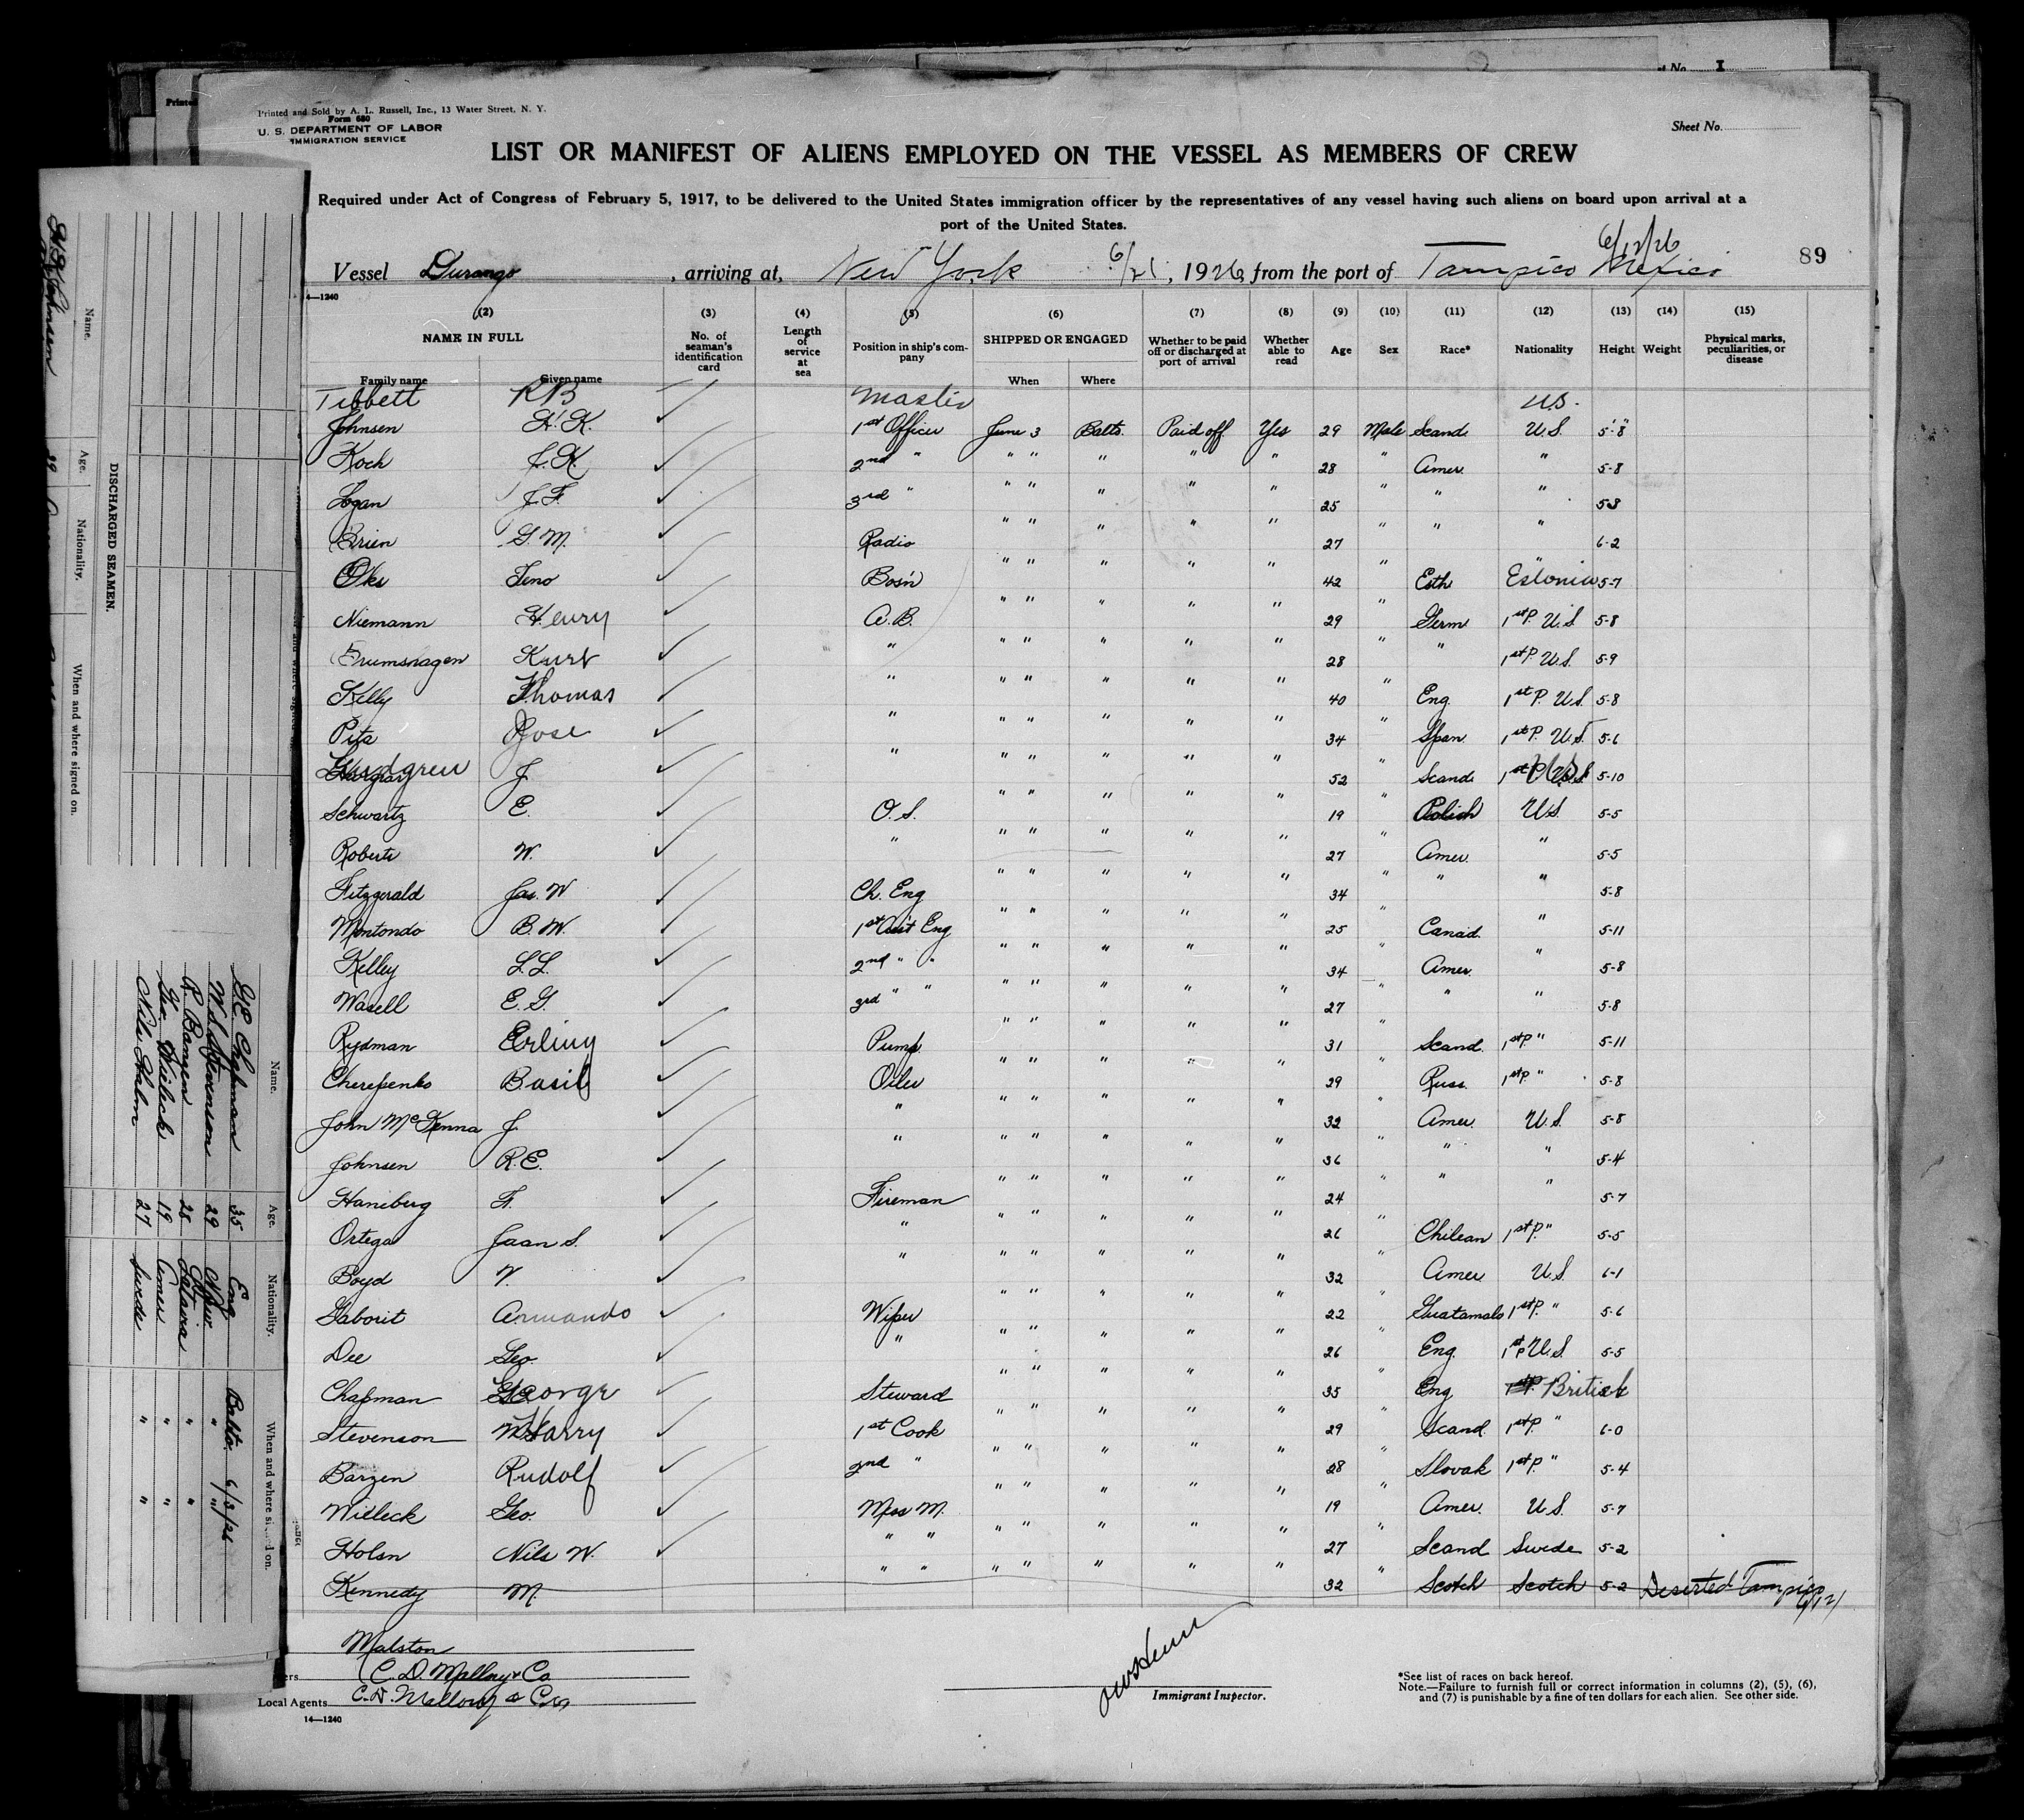 t No. I
Printed
Printed and Sold by A. L. Russell, Inc., 13 Water Street, N. Y.
Form 680
U. S. DEPARTMENT OF LABOR
IMMIGRATION SERVICE
Sheet No.
LIST OR MANIFEST OF ALIENS EMPLOYED ON THE VESSEL AS MEMBERS OF CREW
Required under Act of Congress of February 5, 1917, to be delivered to the United States immigration officer by the representatives of any vessel having such aliens on board upon arrival at a
port of the United States.
6/12/26
89
Vessel Durango, arriving at, New York 6/21, 1926, from the port of Tampico Mexico
4—1240
(2) (3) (4) (5) (6) (7) (8) (9) (10) (11) (12) (13) (14) (15)
NAME IN FULL No. of seaman's identification card Length of service at sea Position in ship's company SHIPPED OR ENGAGED Whether to be paid off or discharged at port of arrival Whether able to read Age Sex Race* Nationality Height Weight Physical marks, peculiarities, or disease
Family name Given name When Where
Tibbett RB Master U.S.
Johnsen H. K. 1st Officer June 3 Balto. Paid off Yes 29 Male Scand. U.S. 5'-8"
Koch J. K. 2nd " " " " " " 28 " Amer. " 5-8
Logan J. F. 3rd " " " " " " 25 " " " 5-8
Brien G. M. Radio " " " " " 27 " " " 6-2
Oks Teno Bos'n " " " " " 42 " Esth. Estonia 5-7
Niemann Henry A. B. " " " " " 29 " Germ. 1st P. U.S. 5-8
Krumshagen Kurt " " " " " " 28 " " 1st P. U.S. 5-9
Kelly Thomas " " " " " " 40 " Eng. 1st P. U.S. 5-8
Pita Jose " " " " " " 34 " Span. 1st P. U.S. 5-6
Lundgren J. " " " " " " 52 " Scand. 1st P. U.S. 5-10
Schwartz E. O. S. " " " " " 19 " Polish U.S. 5-5
Roberts W. " " " " " " 27 " Amer. " 5-5
Fitzgerald Jas. W Ch. Eng " " " " " 34 " " " 5-8
Montondo B. W. 1st Ass't Eng " " " " " 25 " Canad. " 5-11
Kelley L. L. 2nd " " " " " " " 34 " Amer. " 5-8
Wasell E. G. 3rd " " " " " " " 27 " " " 5-8
Rydman Erling Pump. " " " " " 31 " Scand. 1st P. " 5-11
Cherepenko Basil Oiler " " " " " 29 " Russ. 1st P. " 5-8
John McKenna J. " " " " " " 32 " Amer. U.S. 5-8
Johnsen R. E. " " " " " " 36 " " " 5-4
Haneberg F. Fireman " " " " " 24 " " " 5-7
Ortega Jaan S. " " " " " " 26 " Chilean 1st P. " 5-5
Boyd V. " " " " " " 32 " Amer U.S. 6-1
Gaborit Armando Wiper " " " " " 22 " Guatamala 1st P. " 5-6
Dee Geo. " " " " " " 26 " Eng. 1st P U.S. 5-5
Chapman George Steward " " " " " 35 " Eng British
Stevenson Harry 1st Cook " " " " " 29 " Scand. 1st P. " 6-0
Barzen Rudolf 2nd " " " " " " 28 " Slovak 1st P. " 5-4
Willeck Geo. Mess M. " " " " " 19 " Amer. U.S. 5-7
Holsn Nils W. " " " " " " " 27 " Scand Swede 5-2
Kennedy M. " " " " " " " 32 " Scotch Scotch 5-2 Deserted Tampico
Malston
ers C. D. Mallory & Co
Local Agents C. D. Mallory & Co
14—1240
Immigrant Inspector.
*See list of races on back hereof.
Note.—Failure to furnish full or correct information in columns (2), (5), (6),
and (7) is punishable by a fine of ten dollars for each alien. See other side.
DISCHARGED SEAMEN.
Name. Age. Nationality. When and where signed on.
H. K. Johnsen 29
Name. Age. Nationality. When and where signed on.
G E Chapman 35 Eng. Balto. 6/3/26
W S Stevensen 29 Norw. " "
R. Banzen 28 Latvia " "
Geo. Willeck 19 Amer. " "
Nils Halm 27 Swede " "